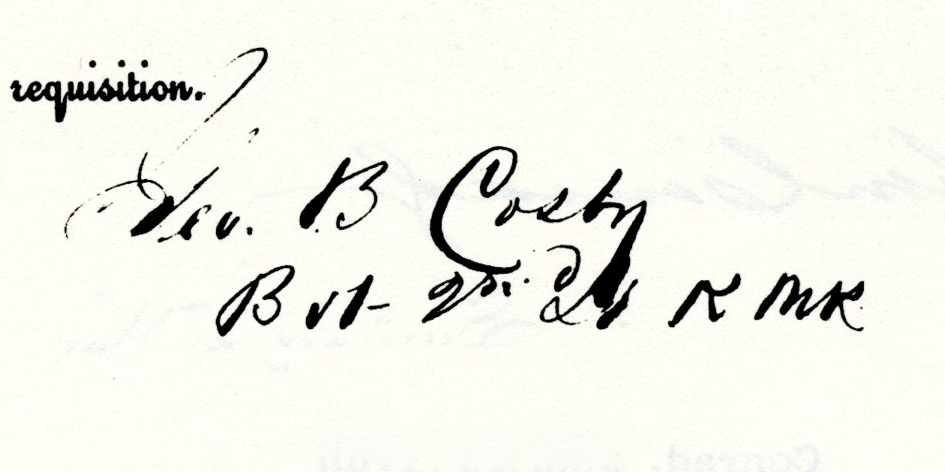 requisition.
Geo. B Cosby
Bvt 2n. Lt R MR